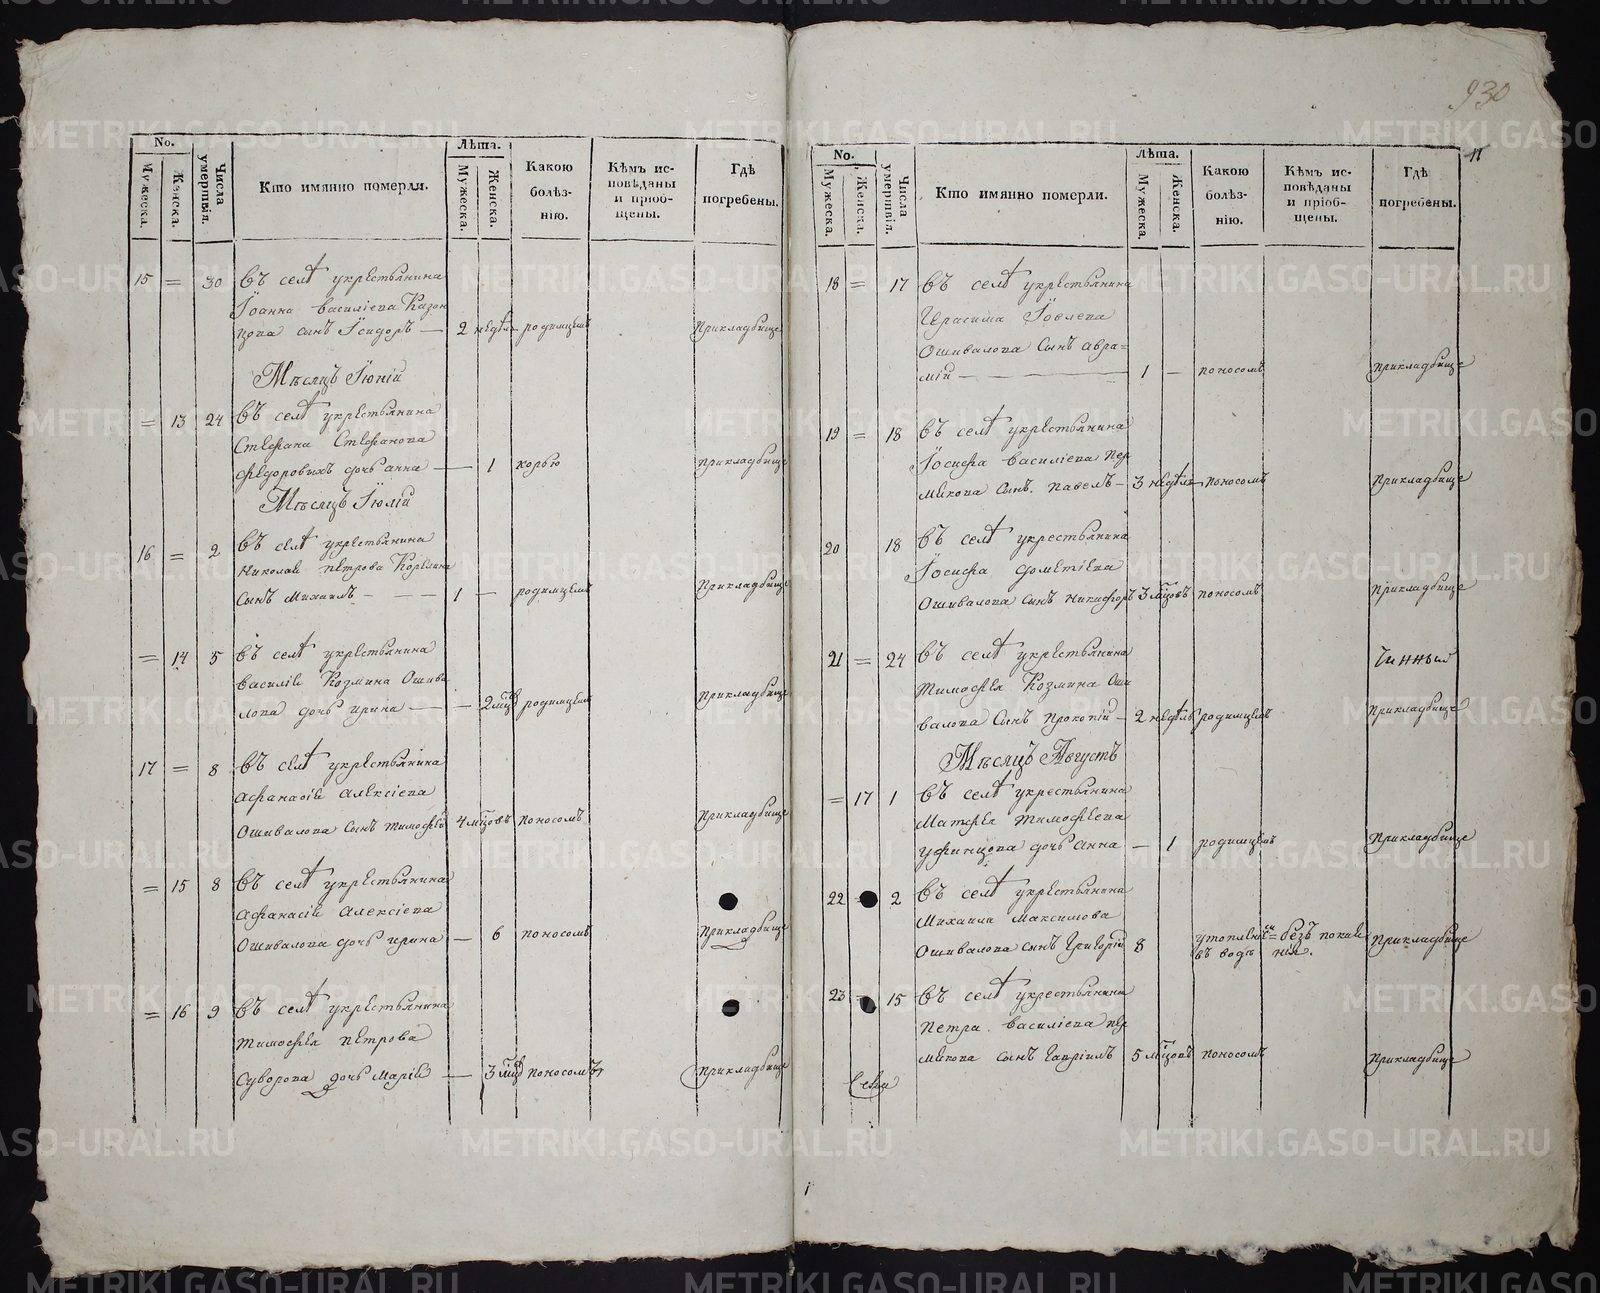 930
11
No.
Мужеска.
Женска.
Числа умертвія.
Кто имянно померли.
Лѣта.
Мужеска.
Женска.
Какою болѣзнію.
Кѣмъ исповѣданы и пріобщены.
Гдѣ погребены.
15 = 30 Въ селѣ укрестьянина
Іоанна василіева Казан
цова сынъ Ісидоръ — 2 недѣль родимцемъ прикладбище
Мѣсяцъ Іюній
= 13 24 Въ селѣ укрестьянина
Стефана Стефанова
федоровыхъ дочь анна — 1 корью прикладбище
Мѣсяцъ Іюлій
16 = 2 Въ селѣ укрестьянина
Николая петрова
сынъ Михаилъ — — 1 — родимцемъ прикладбище
= 14 5 Въ селѣ укрестьянина
василія Козмина Ошива
лова дочь ирина — — 2 мцъ родимцемъ прикладбище
17 = 8 Въ селѣ укрестьянина
афанасія алексіева
Ошивалова сынъ тимофей 4 мцовъ поносомъ прикладбище
= 15 8 Въ селѣ укрестьянина
афанасія алексіева
Ошивалова дочь ирина — 6 поносомъ прикладбище
= 16 9 Въ селѣ укрестьянина
тимофея петрова
Суворова дочь Марія — 3 мцъ поносомъ прикладбище
No.
Мужеска.
Женска.
Числа умертвія.
Кто имянно померли.
Лѣта.
Мужеска.
Женска.
Какою болѣзнію.
Кѣмъ исповѣданы и пріобщены.
Гдѣ погребены.
18 = 17 Въ селѣ укрестьянина
Герасима Іовлева
Ошивалова сынъ авра=
мій — 1 — поносомъ прикладбище
19 = 18 Въ селѣ укрестьянина
Іосифа василіева пер
мякова сынъ павелъ — 3 недѣль поносомъ прикладбище
20 18 Въ селѣ укрестьянина
Іосифа дометіева
Ошивалова сынъ никифоръ 3 мцовъ поносомъ прикладбище
21 = 24 Въ селѣ укрестьянина
тимофея Козмина Оши
валова сынъ прокопій — 2 недѣль родимцемъ прикладбище
Мѣсяцъ Августъ
= 17 1 Въ селѣ укрестьянина
Матфея тимофеева
уфинцова дочь анна — 1 родимцемъ прикладбище
22 2 Въ селѣ укрестьянина
Михаила Максимова
Ошивалова сынъ Григорій 8 въ водѣ безъ покая нія. прикладбище
23 15 Въ селѣ укрестьянина
петра василіева пер
мякова сынъ гавріилъ 5 мцовъ поносомъ прикладбище
METRIKI.GASO-URAL.RU